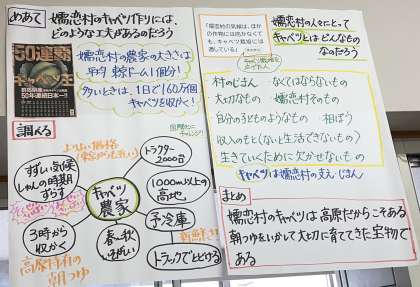 めあて
嬬恋村のキャベツ作りには、
どのような工夫があるのだろう
50連覇
嬬恋村の農家の大きさは
平均 東京ドーム1個分!
多いときは、1日で160万個
キャベツを収かく!
調べる
トラクター
2000台
すずしい気候
しゅんの時期
ずらす
キャベツ
農家
1000m以上の
高地
予冷庫
3時から
収かく
春〜秋
トラックでとどける
高原特有の
朝つゆ
嬬恋村の人々にとって
キャベツとはどんなもの
なのだろう
村のじまん
なくてはならないもの
大切なもの
嬬恋村そのもの
自分の子どものようなもの
相ぼう
収入のもと(ないと生活できないもの)
生きていくために欠かせないもの
キャベツは嬬恋村の支え、じまん
まとめ
嬬恋村のキャベツは高原だからこそある
朝つゆをいかして大切に育ててきた宝物で
ある